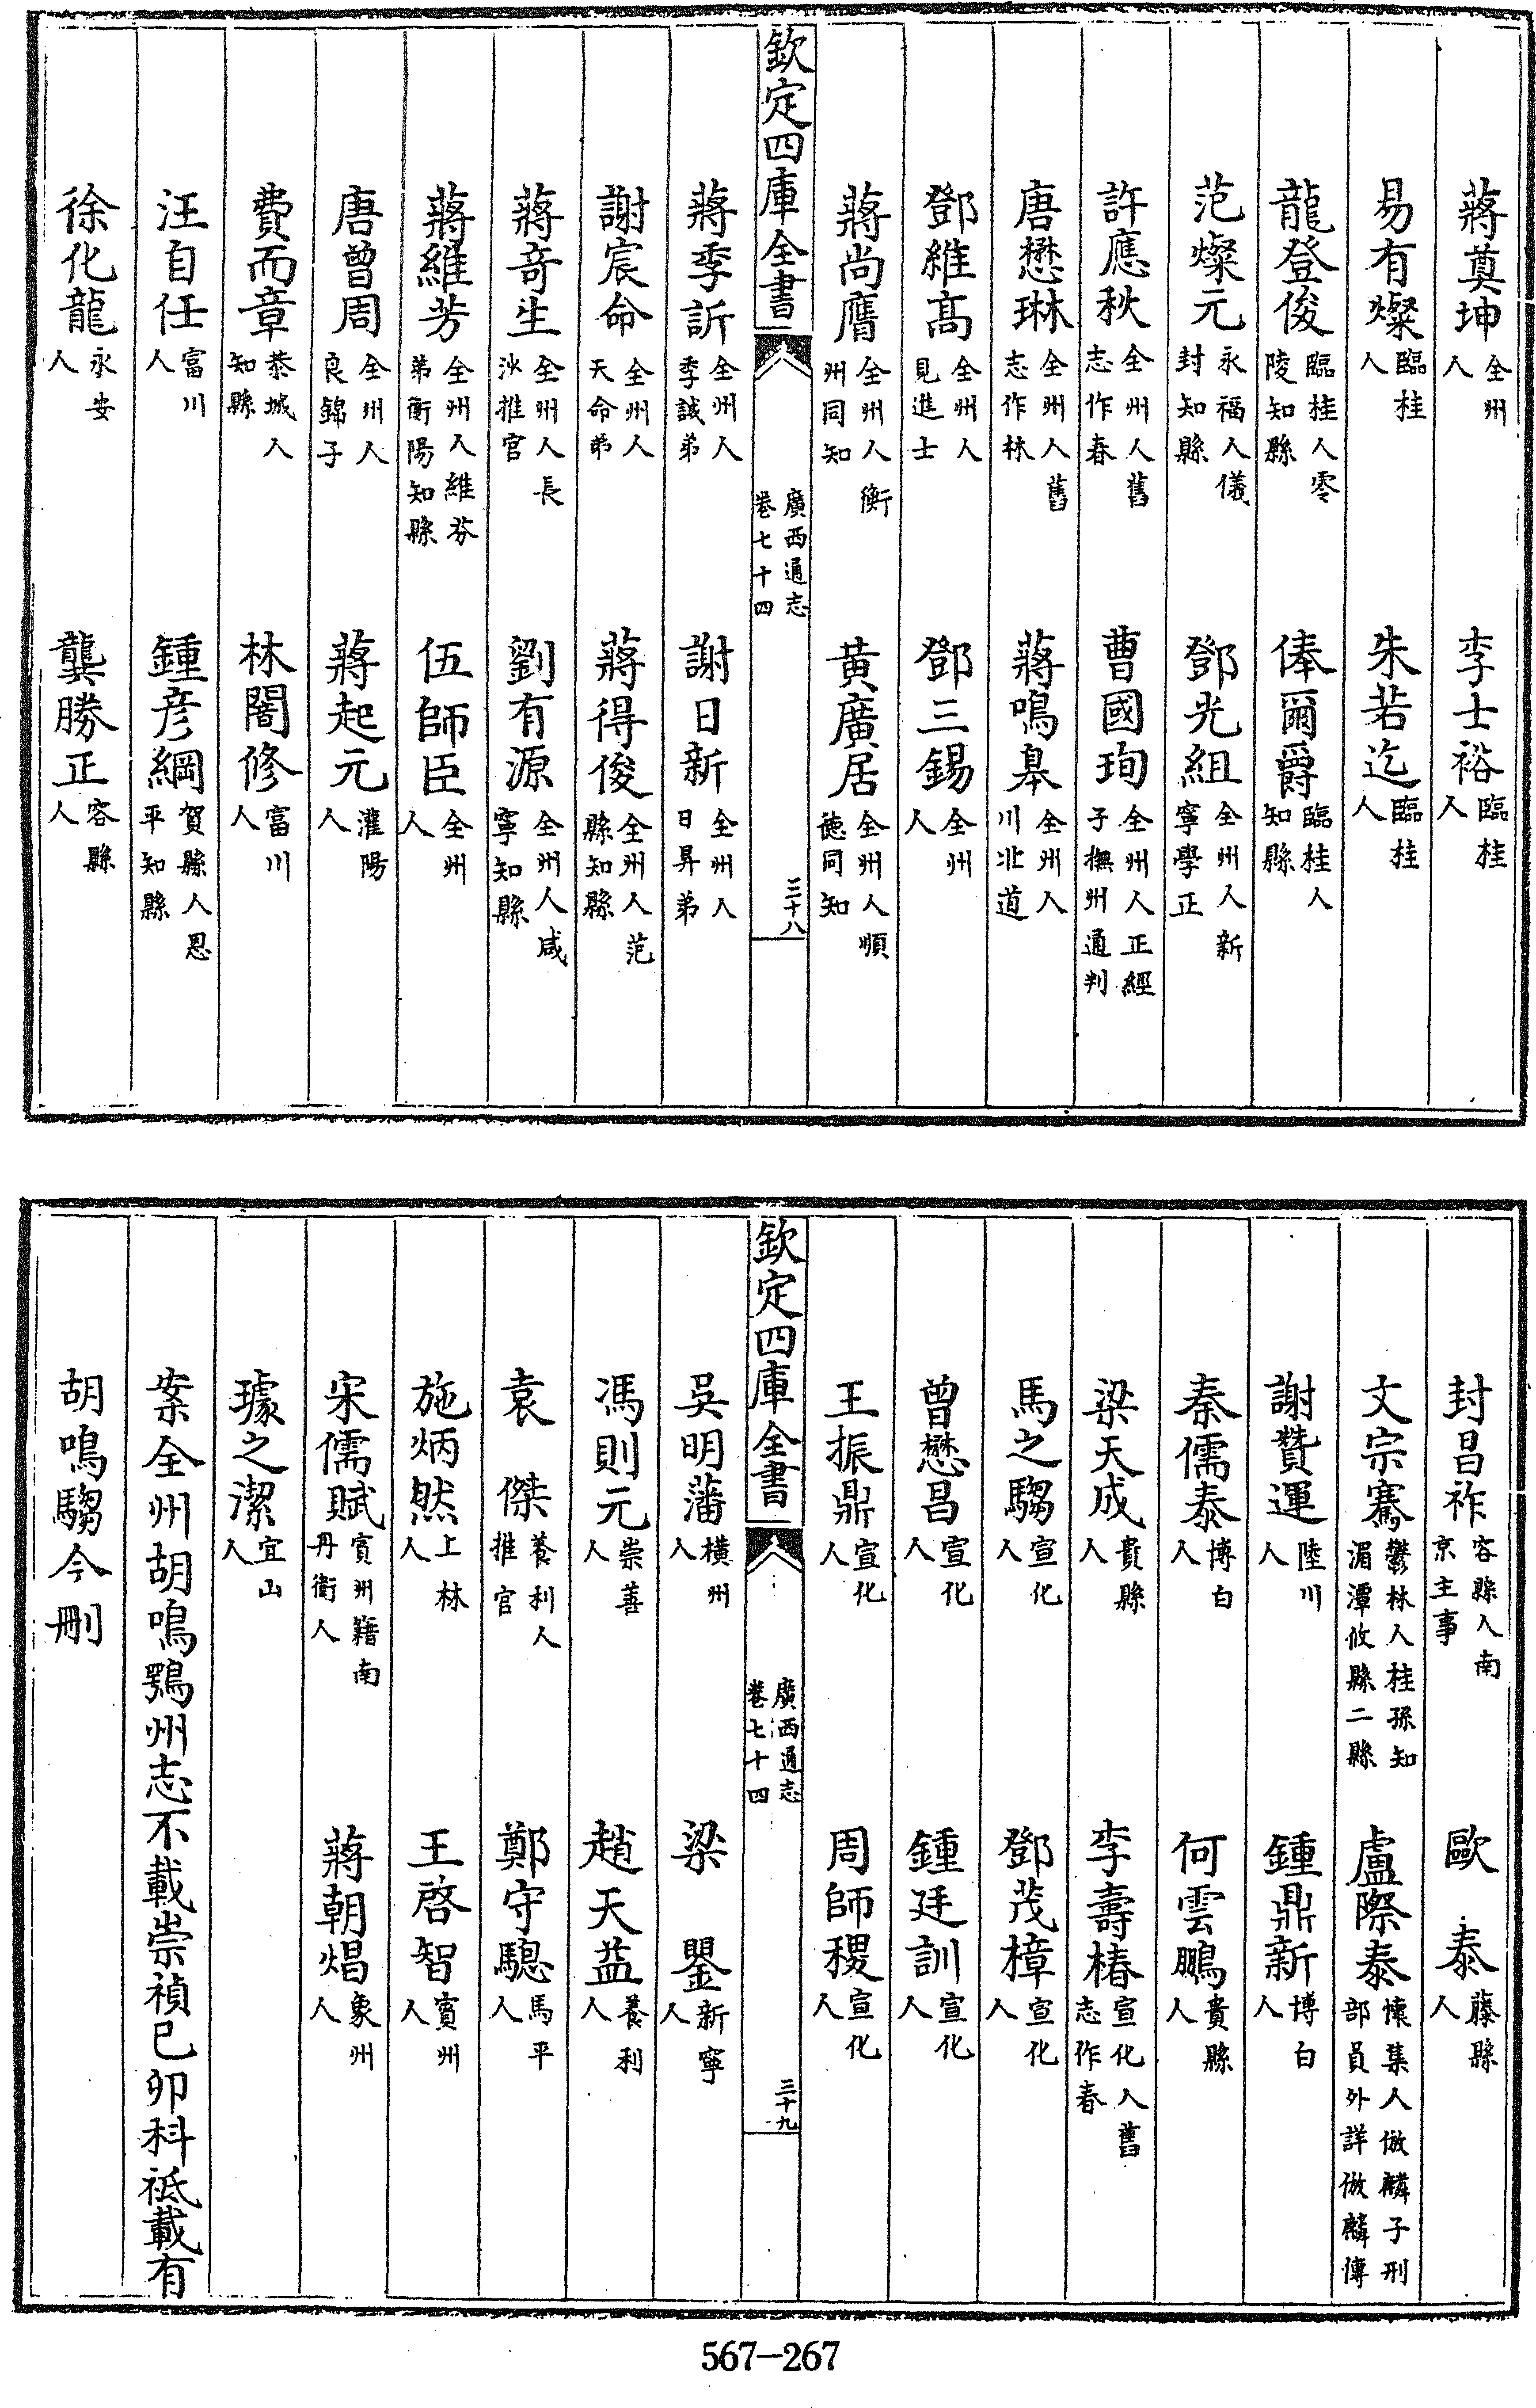 蔣奠坤全州人　李士裕臨桂人
易有燦臨桂人　朱若迄臨桂人
龍登俊臨桂人零陵知縣　俸爾爵臨桂人知縣
范燦元永福人儀封知縣　鄧光組全州人新寧學正
許應秋全州人舊志作春　曹國珣全州人正經子撫州通判
唐懋琳全州人舊志作林　蔣鳴皋全州人川北道
鄧維高全州人見進士　鄧三錫全州人
蔣尚膺全州人衡州同知　黃廣居全州人順德同知
欽定四庫全書　廣西通志卷七十四　三十八
蔣季訢全州人季誠弟　謝日新全州人日昇弟
謝宸命全州人天命弟　蔣得俊全州人范縣知縣
蔣奇生全州人長沙推官　劉有源全州人咸寧知縣
蔣維芳全州人維芬弟衡陽知縣　伍師臣全州人
唐曾周全州人良錦子　蔣起元灌陽人
費而章恭城人知縣　林闇修富川人
汪自任富川人　鍾彥綱賀縣人恩平知縣
徐化龍永安人　龔勝正容縣人
封昌祚容縣人南京主事　歐泰藤縣人
文宗騫鬱林人桂孫知湄潭攸縣二縣　盧際泰懷集人倣麟子刑部員外詳倣麟傳
謝贊運陸川人　鍾鼎新博白人
秦儒泰博白人　何雲鵬貴縣人
梁天成貴縣人　李壽椿宣化人舊志作春
馬之騶宣化人　鄧茂樟宣化人
曾懋昌宣化人　鍾廷訓宣化人
王振鼎宣化人　周師稷宣化人
欽定四庫全書　廣西通志卷七十四　三十九
吳明藩橫州人　梁瞾新寧人
馮則元崇善人　趙天益養利人
袁傑養利人推官　鄭守驄馬平人
施炳然上林人　王啓智賓州人
宋儒賦賓州籍南丹衛人　蔣朝焻象州人
璩之潔宜山人
案全州胡鳴鶚州志不載崇禎己卯科祗載有
胡鳴騶今刪
567-267